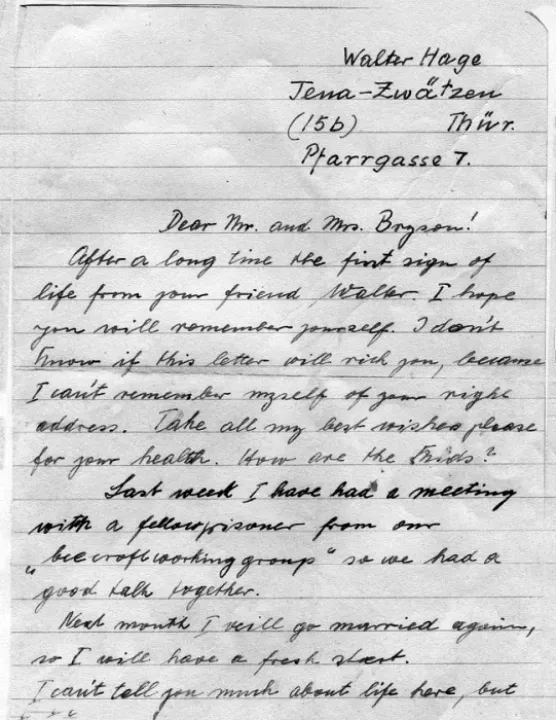 Walter Hage
Jena-Zwätzen
(15b) Thür.
Pfarrgasse 7.
Dear Mr. and Mrs. Bryson!
After a long time the first sign of
life from your friend Walter. I hope
you will remember yourself. I don't
know if this letter will rich you, because
I can't remember myself of your right
address. Take all my best wishes please
for your health. How are the kids?
Last week I have had a meeting
with a fellowprisoner from our
„beecroftworkinggroup" so we had a
good talk together.
Next month I will go married again,
so I will have a fresh start.
I can't tell you much about life here, but